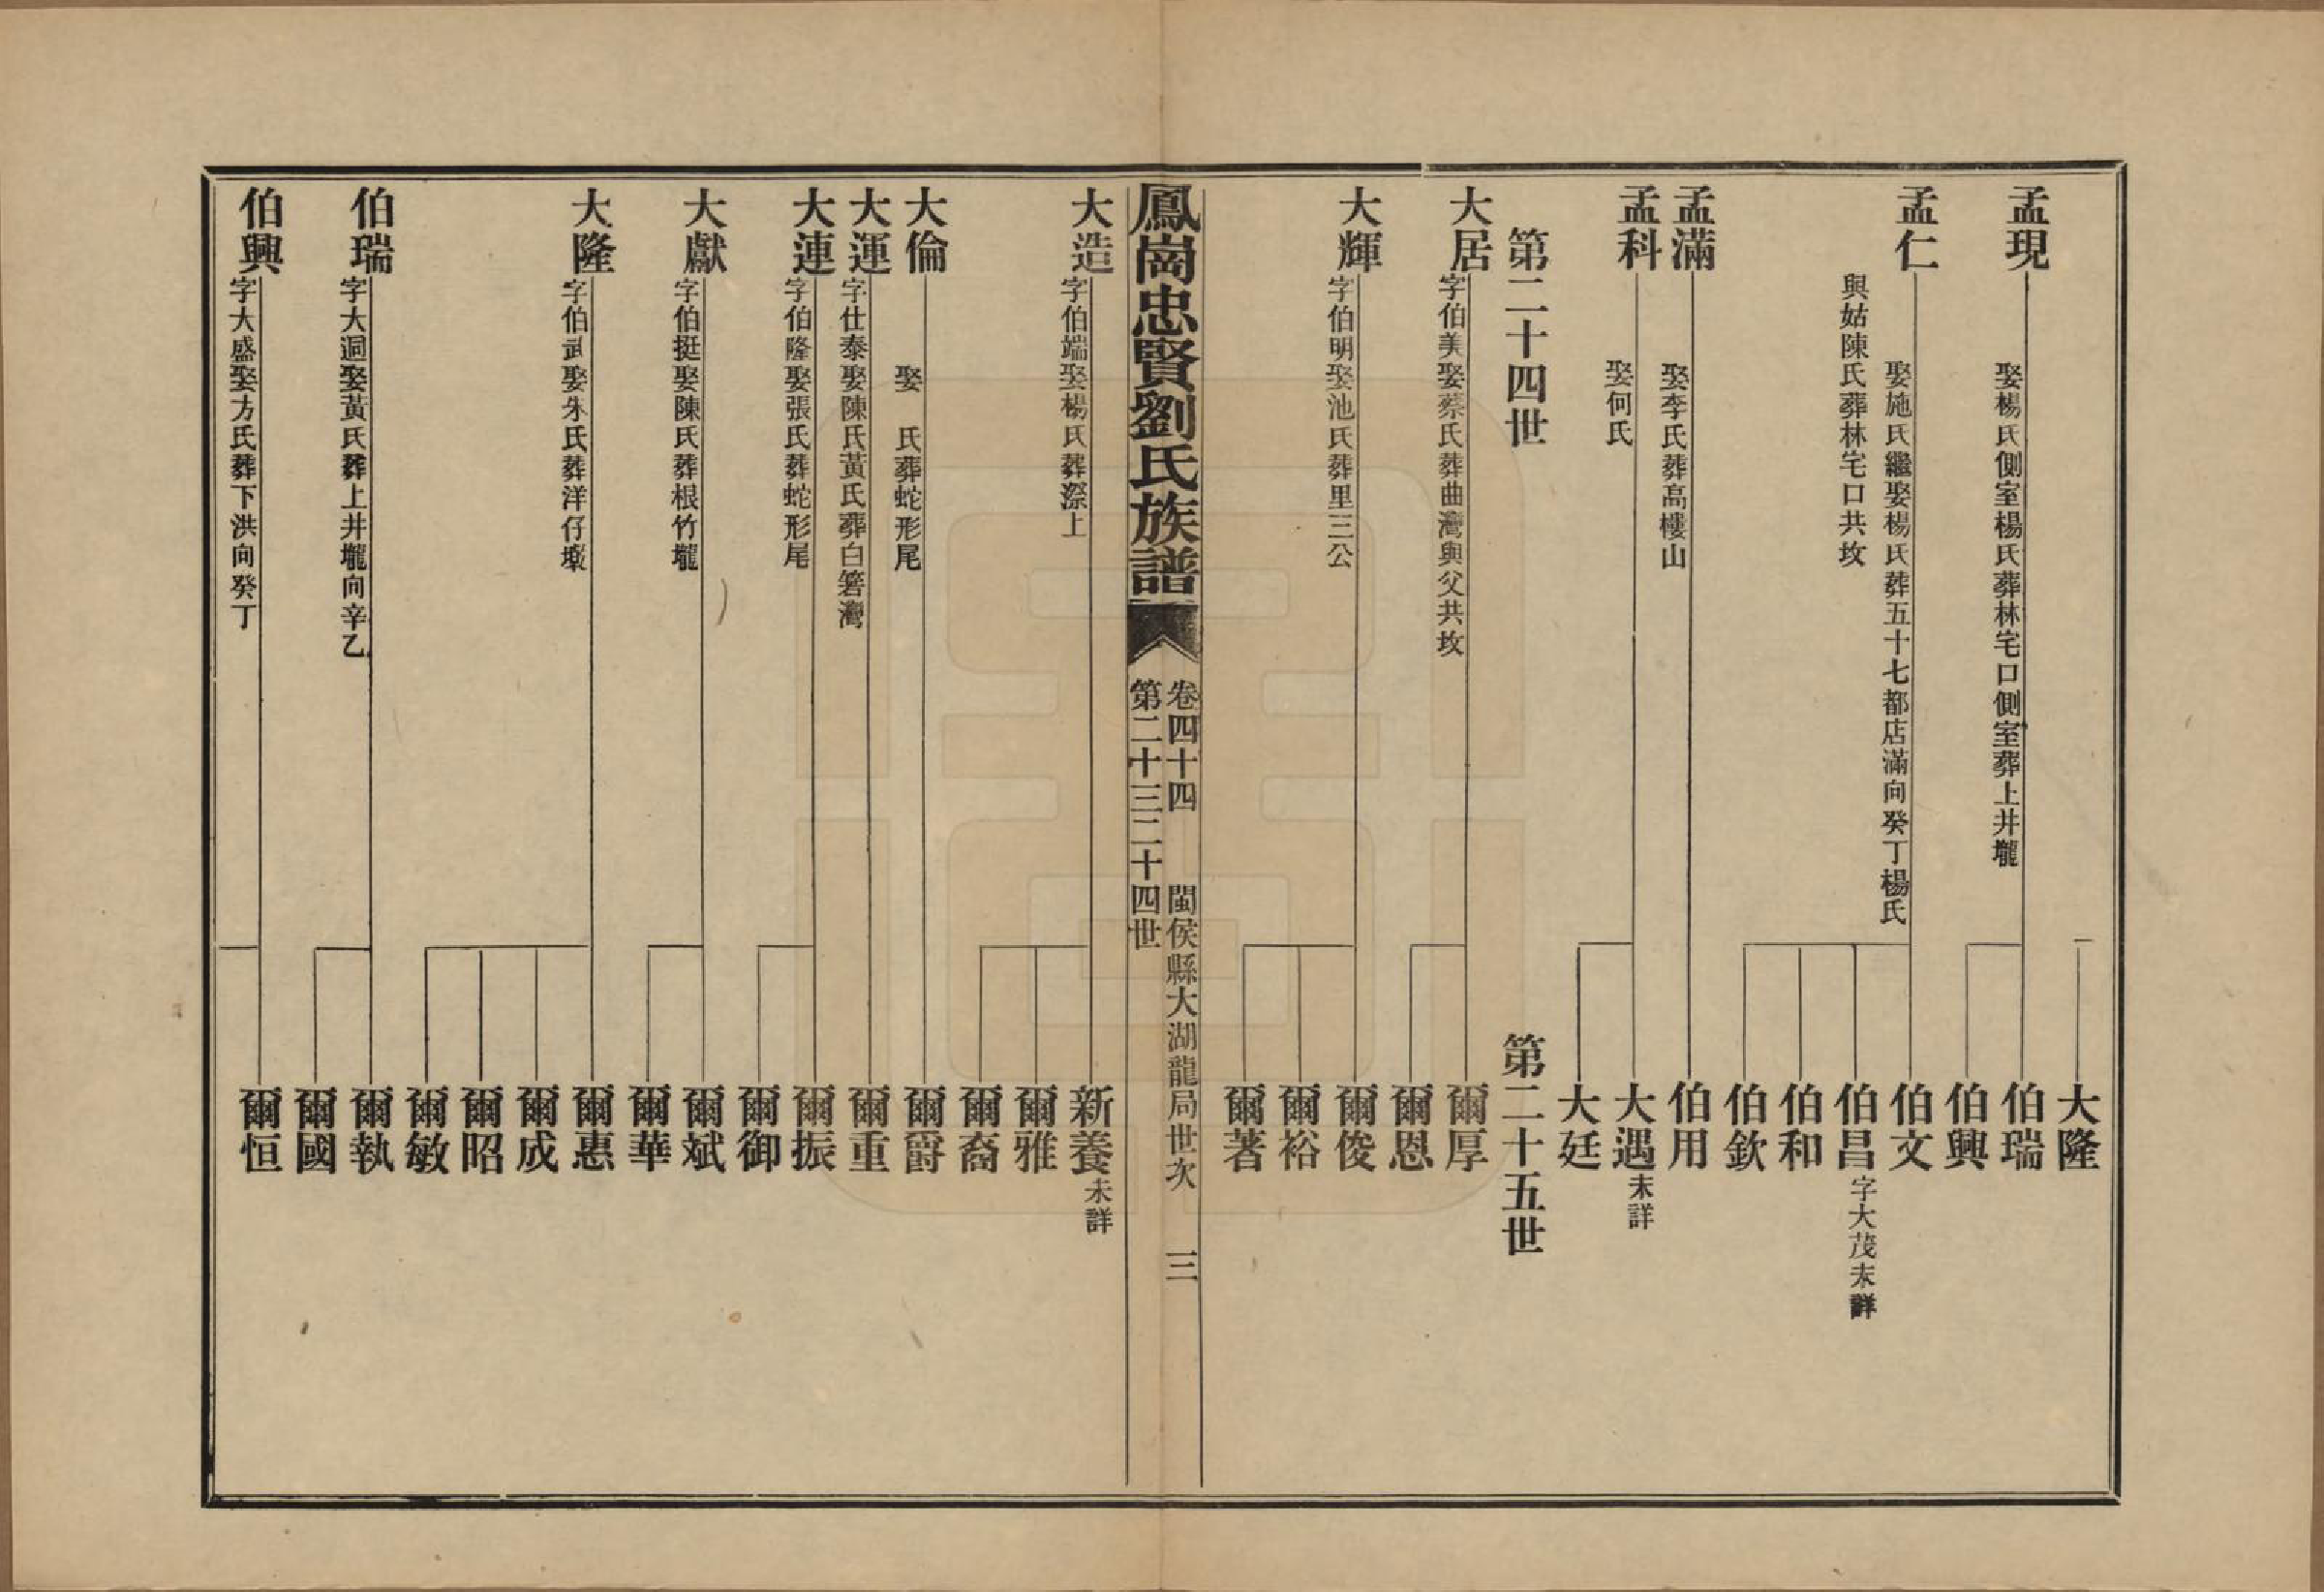 大隆
孟現
娶楊氏側室楊氏葬林宅口側室葬上井壠
伯瑞
伯興
孟仁
娶施氏繼娶楊氏葬五十七都店滿向癸丁楊氏
與姑陳氏葬林宅口共坟
伯文
伯昌字大茂未詳
伯和
伯欽
孟滿
娶李氏葬高樓山
伯用
孟科
娶何氏
大遇未詳
大廷
第二十四世
第二十五世
大居
字伯美娶蔡氏葬曲灣與父共坟
爾厚
爾恩
大輝
字伯明娶池氏葬里三公
爾俊
爾裕
爾著
鳳崗忠賢劉氏族譜
卷四十四 閩侯縣大湖龍局世次 三
第二十三二十四世
大造
字伯端娶楊氏葬深上
新養未詳
爾雅
爾裔
大倫
娶 氏葬蛇形尾
爾爵
大運
字仕泰娶陳氏黃氏葬白箬灣
爾重
大連
字伯隆娶張氏葬蛇形尾
爾振
爾御
大獻
字伯挺娶陳氏葬根竹壠
爾斌
爾華
大隆
字伯武娶朱氏葬洋仔墘
爾惠
爾成
爾昭
爾敏
伯瑞
字大迵娶黃氏葬上井壠向辛乙
爾執
爾國
伯興
字大盛娶方氏葬下洪向癸丁
爾恒